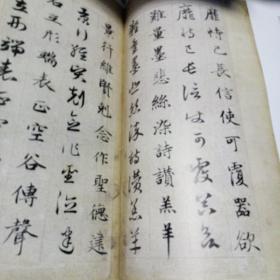 靡恃己長信使可覆器欲
靡恃己長信使可覆器欲
難量墨悲絲染詩讚羔羊
難量墨悲絲染詩讚羔羊
景行維賢剋念作聖德建
景行維賢剋念作聖德建
名立形端表正空谷傳聲
立形端表正